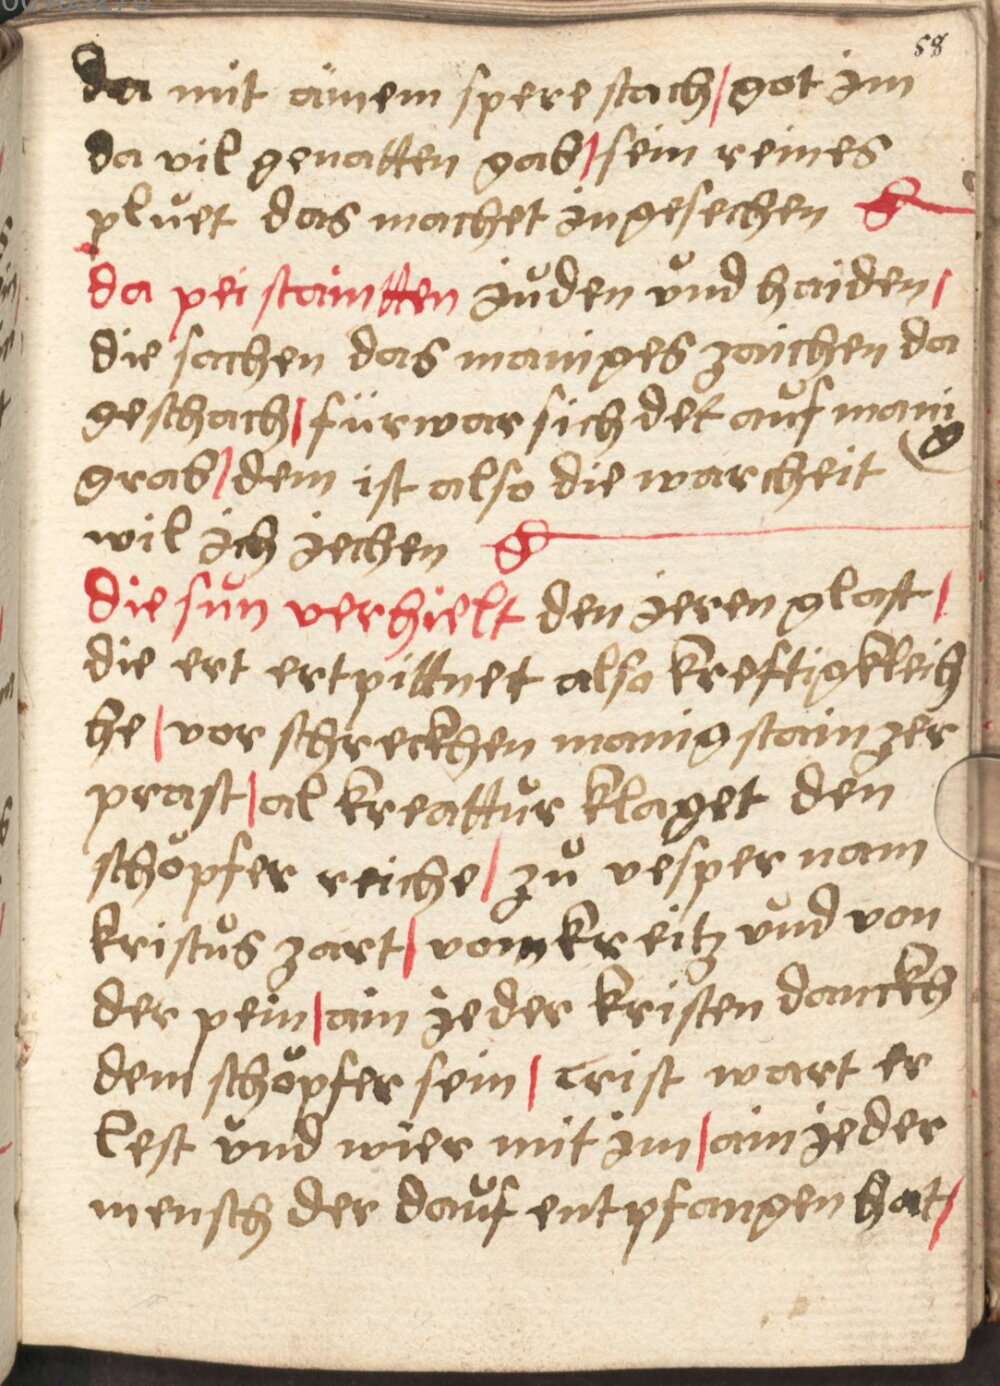 58
da mit ainem spere stach / got im
da vil genatten gab / sein reines
plůet das machet in gesechen
da pei staintten jůden ůnd haiden /
die sachen das maniges zaichen da
geschach / fürwar sich det aůf manig
grab / dem ist also die warcheit
wil ich jechen
die sůn verhielt den jeren glast /
die ert ertpittnet also kreftigkleich
he / vor schreckhen manig stain zer
prast / al kreattůr klaget den
schöpfer reiche / zů vesper nam
kristůs zart / vom kreitz ůnd von
der pein / ain jeder kristen danckh
dem schöpfer sein / crist wart er
lest ůnd wier mit im / ain jeder
mensch der daůf entpfangen hat /